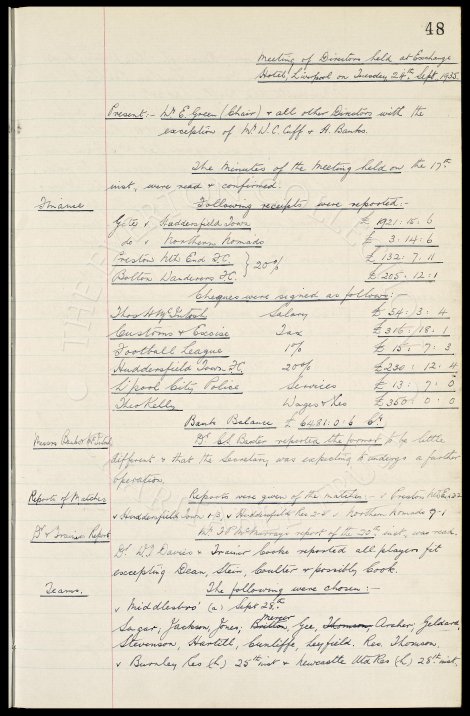 48
Meeting of Directors held at Exchange
Hotel, Liverpool on Tuesday 24th Sept 1935.
Present:- Mr E. Green (Chair) & all other Directors with the
exception of Mr W.C. Cuff & A. Banks.
The Minutes of the Meeting held on the 17th
inst, were read & confirmed.
Finance
Following receipts were reported:-
Gate v Huddersfield Town £ 1921:15:6
do v Northern Nomads £ 3:14:6
Preston Nth End F.C. } 20% £ 132:7:11
Bolton Wanderers F.C. £ 205:12:1
Cheques were signed as follows:-
Thos H. McIntosh Salary £ 54:13:4
Customs & Excise Tax £ 316:18:1
Football League 1% £ 15:7:3
Huddersfield Town F.C. 20% £ 230:12:4
L'pool City Police Services £ 13:7:0
Theo Kelly Wages & Res £ 350:0:0
Bank Balance £ 6481:0:6 Cr.
Messrs Banks & McIntosh
Dr C.S. Baxter reported the former to be little
different & that the Secretary was expecting to undergo a further
operation.
Reports of Matches
Reports were given of the matches:- v Preston Nth End 2.2
v Huddersfield Town 1-3, v Huddersfield Res 2-2 v Northern Nomads 7-1
Dr & Trainers Report
Mr McMurray's report of the 20th inst, was read.
Dr W.J. Davies & Trainer Cooke reported all players fit
excepting Dean, Stein, Coulter & possibly Cook.
Teams.
The following were chosen:-
v Middlesbro' (a) Sept 28th
Mercer
Sagar, Jackson, Jones, Britton, Gee, Thomson, Archer, Geldard,
Stevenson, Hartill, Cunliffe, Leyfield. Res. Thomson.
v Burnley Res (h) 25th inst & Newcastle Utd Res (h) 28th inst.